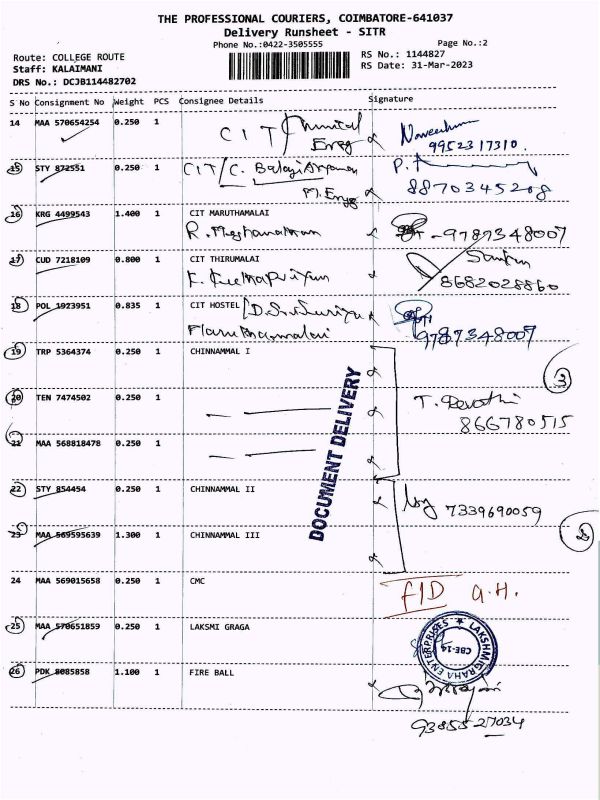 THE PROFESSIONAL COURIERS, COIMBATORE-641037
Delivery Runsheet - SITR
Phone No.:0422-3505555 Page No.:2
Route: COLLEGE ROUTE RS No.: 1144827
Staff: KALAIMANI RS Date: 31-Mar-2023
DRS No.: DCJB114482702
S No Consignment No Weight PCS Consignee Details Signature
14 MAA 570654254 0.250 1 CIT/
9952317310.
15 STY 872551 0.250 1 CIT/C. Balaji
M.Engg 8870345208
16 KRG 4499543 1.400 1 CIT MARUTHAMALAI
9787348007
17 CUD 7218109 0.800 1 CIT THIRUMALAI
8682028860
18 POL 1923951 0.835 1 CIT HOSTEL
9787348007
19 TRP 5364374 0.250 1 CHINNAMMAL I
3
20 TEN 7474502 0.250 1 T. Revathi
866780515
21 MAA 568818478 0.250 1
22 STY 854454 0.250 1 CHINNAMMAL II
7339690059
23 MAA 569595639 1.300 1 CHINNAMMAL III
2
DOCUMENT DELIVERY
24 MAA 569015658 0.250 1 CMC
F/D a.H.
25 MAA 570651859 0.250 1 LAKSMI GRAGA
LAKSHMIGRAHA ENTERPRISES
CBE-14
26 PDK 8085858 1.100 1 FIRE BALL
9385527034